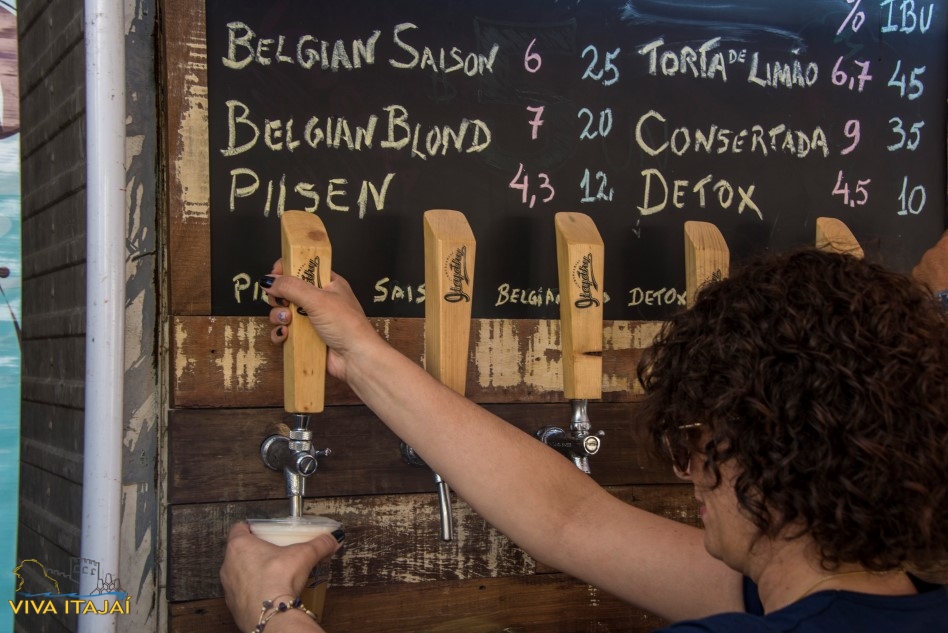 % IBU
BELGIAN SAISON 6 25 TORTA DE LIMÃO 6,7 45
BELGIAN BLOND 7 20 CONSERTADA 9 35
PILSEN 4,3 12 DETOX 4.5 10
SAIS
BELGIA
DETOX
VIVA ITAJAÍ